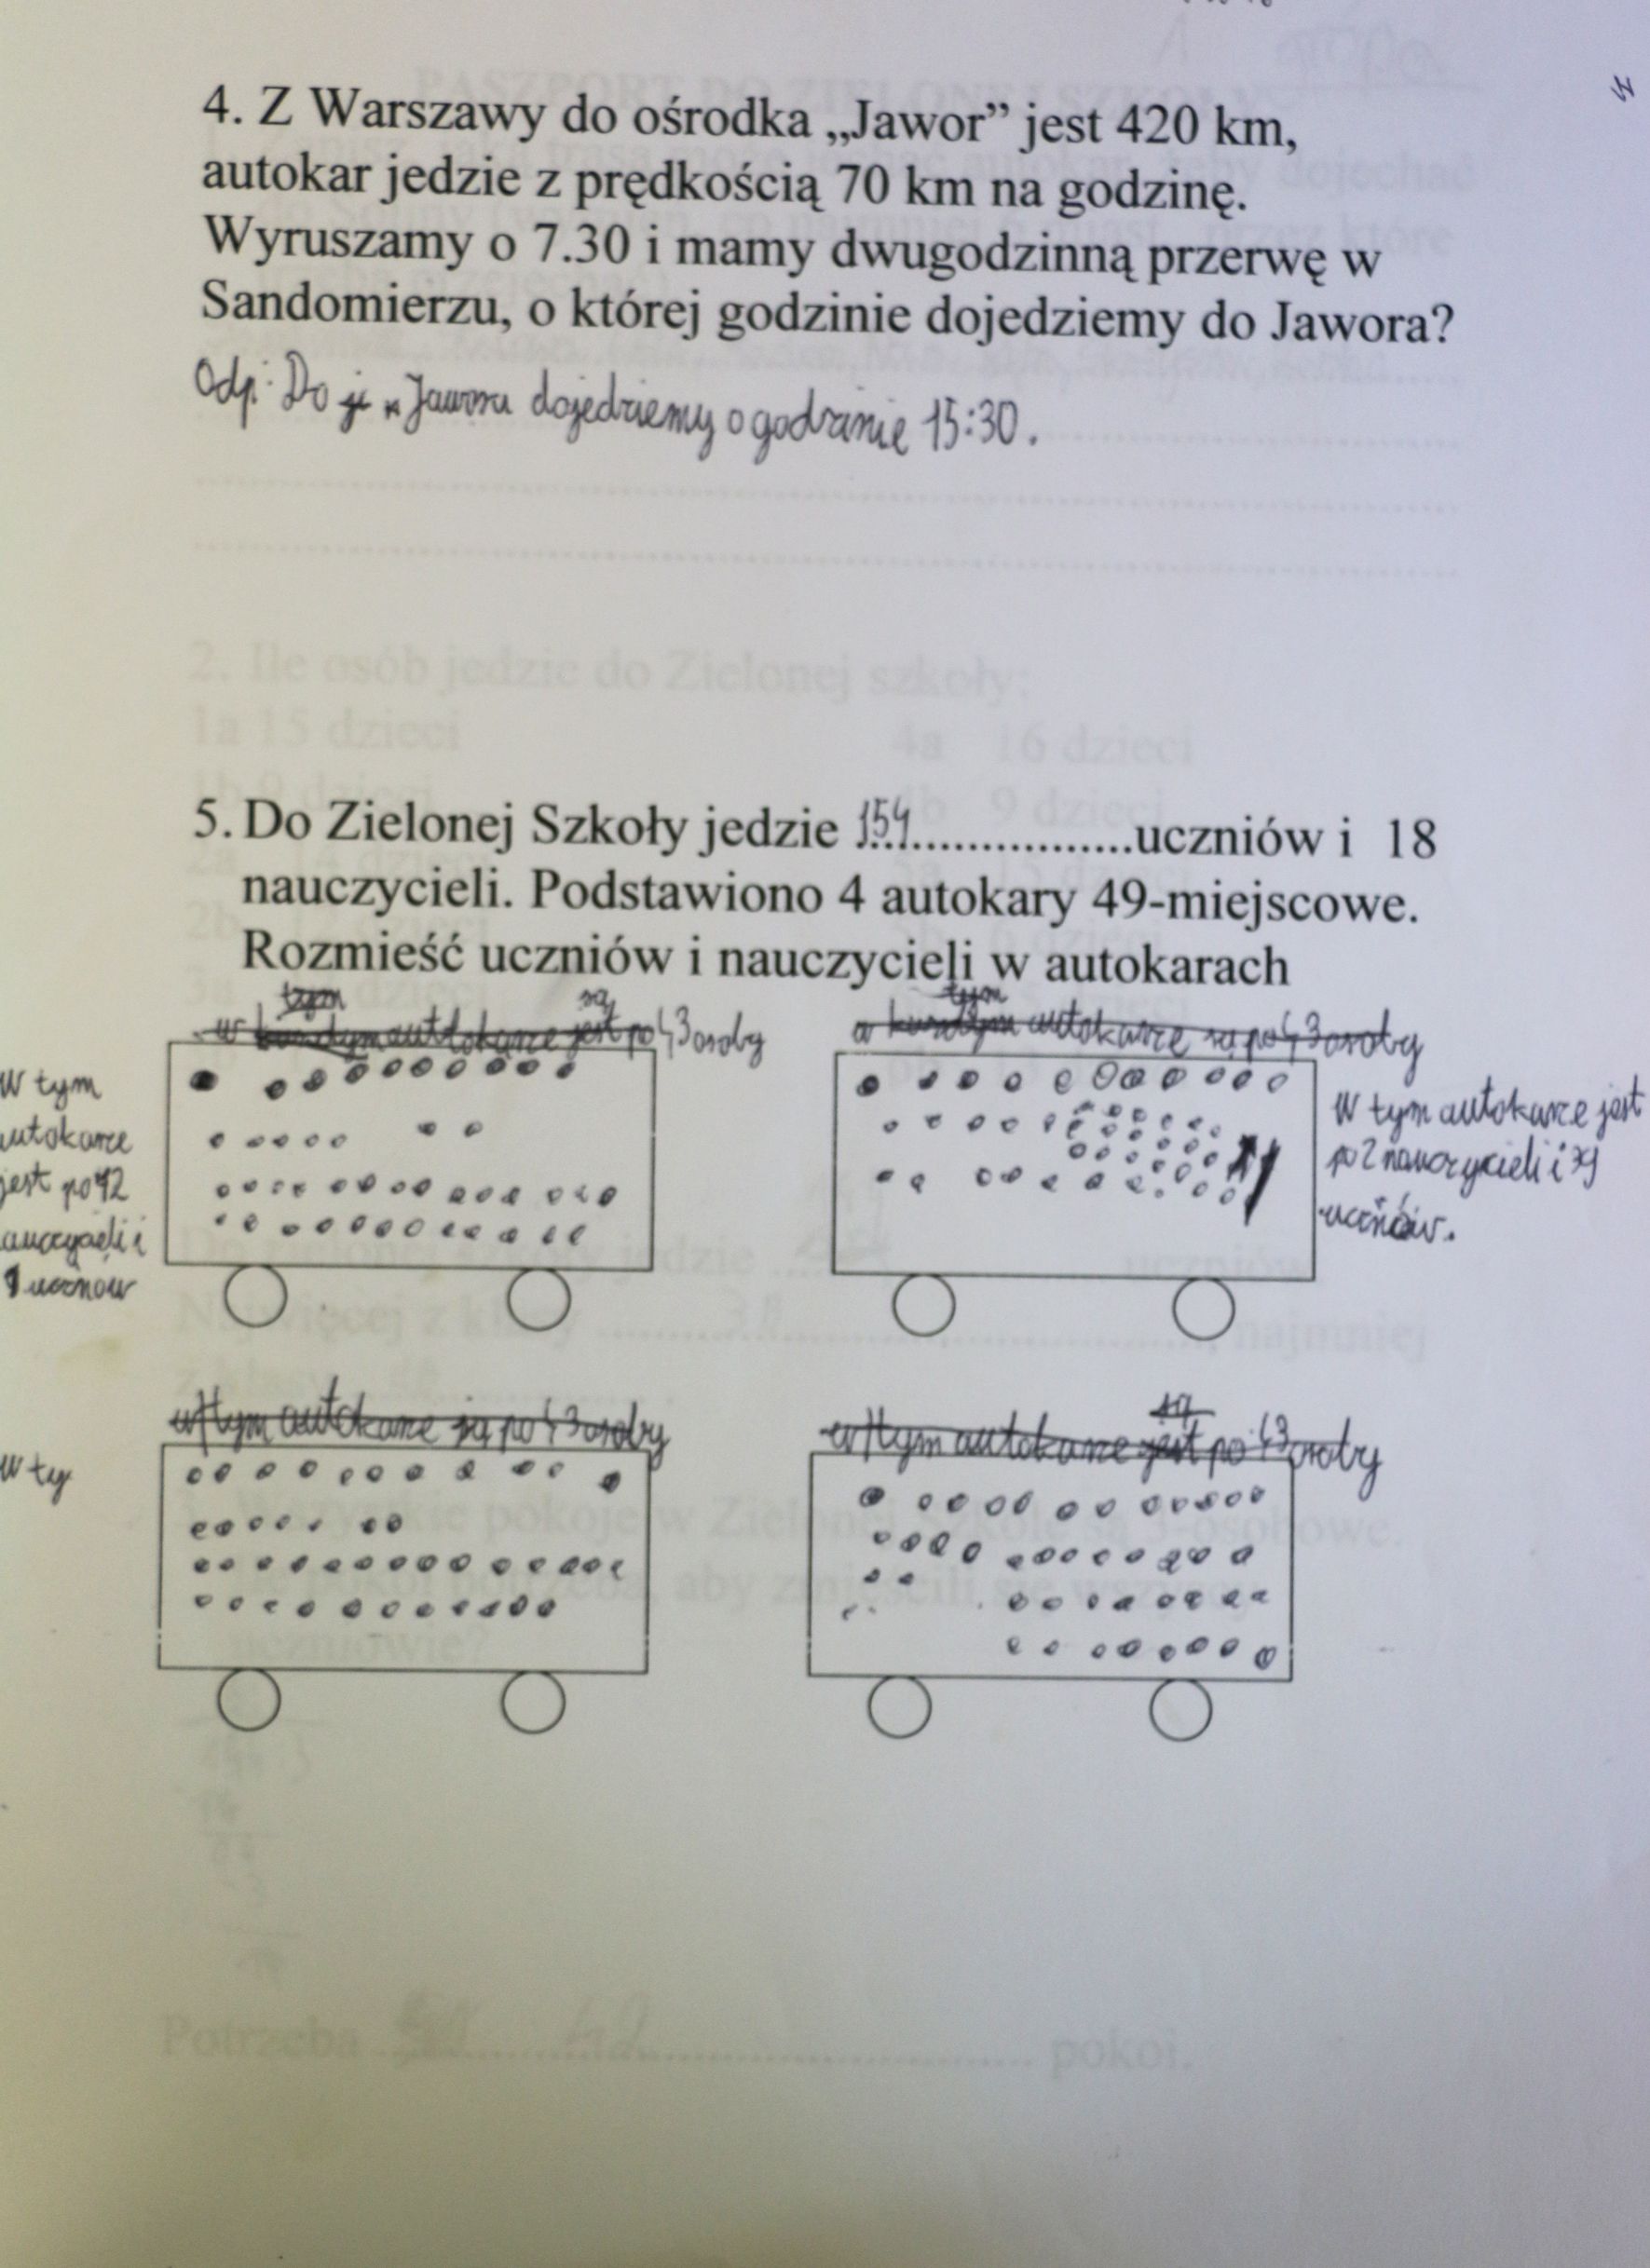 4. Z Warszawy do ośrodka „Jawor” jest 420 km,
autokar jedzie z prędkością 70 km na godzinę.
Wyruszamy o 7.30 i mamy dwugodzinną przerwę w
Sandomierzu, o której godzinie dojedziemy do Jawora?
Odp: Do Jawora dojedziemy o godzinie 15:30.
2. Ile osób jedzie do Zielonej szkoły:
1a 15 dzieci
4a 16 dzieci
4b 9 dzieci
5. Do Zielonej Szkoły jedzie 154 uczniów i 18
nauczycieli. Podstawiono 4 autokary 49-miejscowe.
Rozmieść uczniów i nauczycieli w autokarach
tym są
w autokarze jest po 43 osoby
tym
autokarze są po 43 osoby
W tym
autokarze
jest po
W tym autokarze jest
po 2 nauczycieli i
uczniów.
w tym autokarze są po 43 osoby
są
w tym autokarze jest po 43 osoby
W ty
Potrzeba pokoi.